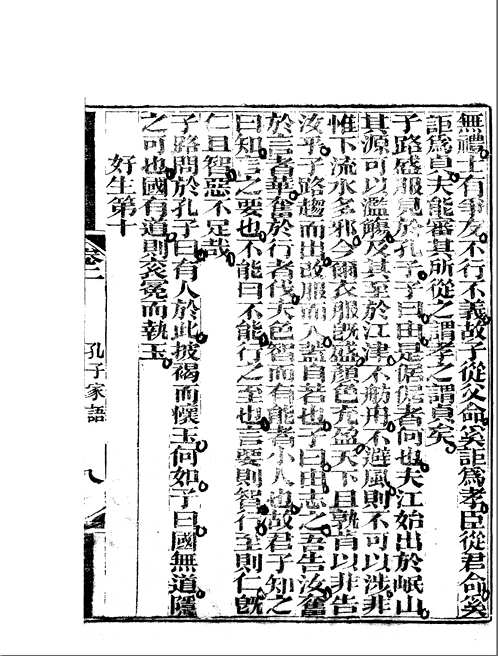 無禮士有爭友不行不義故子從父命奚詎爲孝臣從君命奚
詎爲貞夫能審其所從之謂孝之謂貞矣
子路盛服見於孔子子曰由是倨倨者何也夫江始出於岷山
其源可以濫觴及其至於江津不舫舟不避風則不可以涉非
惟下流水多邪今爾衣服旣盛顏色充盈天下且孰肯以非告
汝乎子路趨而出改服而入蓋自若也子曰由志之吾告汝奮
於言者華奮於行者伐夫色智而有能者小人也故君子知之
曰知言之要也不能曰不能行之至也言要則智行至則仁旣
仁且智惡不足哉
子路問於孔子曰有人於此披褐而懷玉何如子曰國無道隱
之可也國有道則袞冕而執玉
好生第十
卷二
孔子家語
八